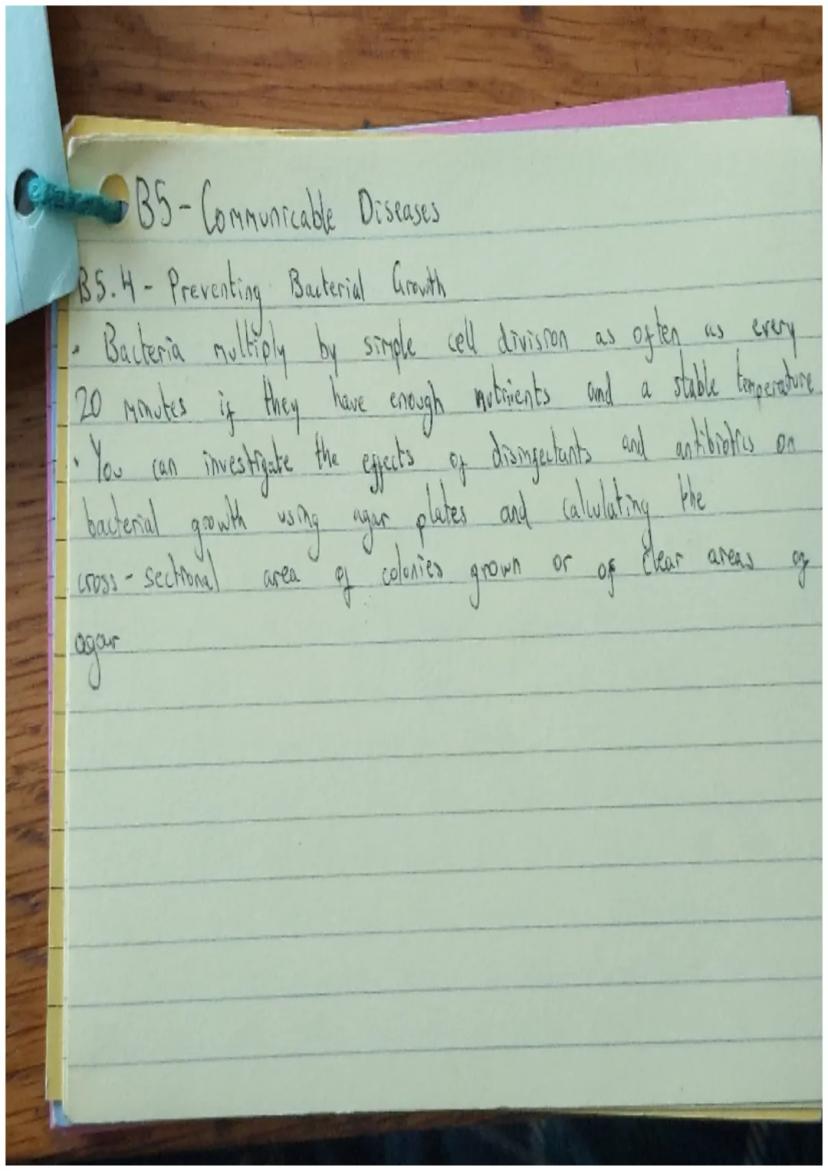 B5 - Communicable Diseases
B5.4 - Preventing Bacterial Growth
• Bacteria multiply by simple cell division as often as every
20 minutes if they have enough nutrients and a stable temperature
• You can investigate the effects of disinfectants and antibiotics on
bacterial growth using agar plates and calculating the
cross-sectional area of colonies grown or of clear areas of
agar